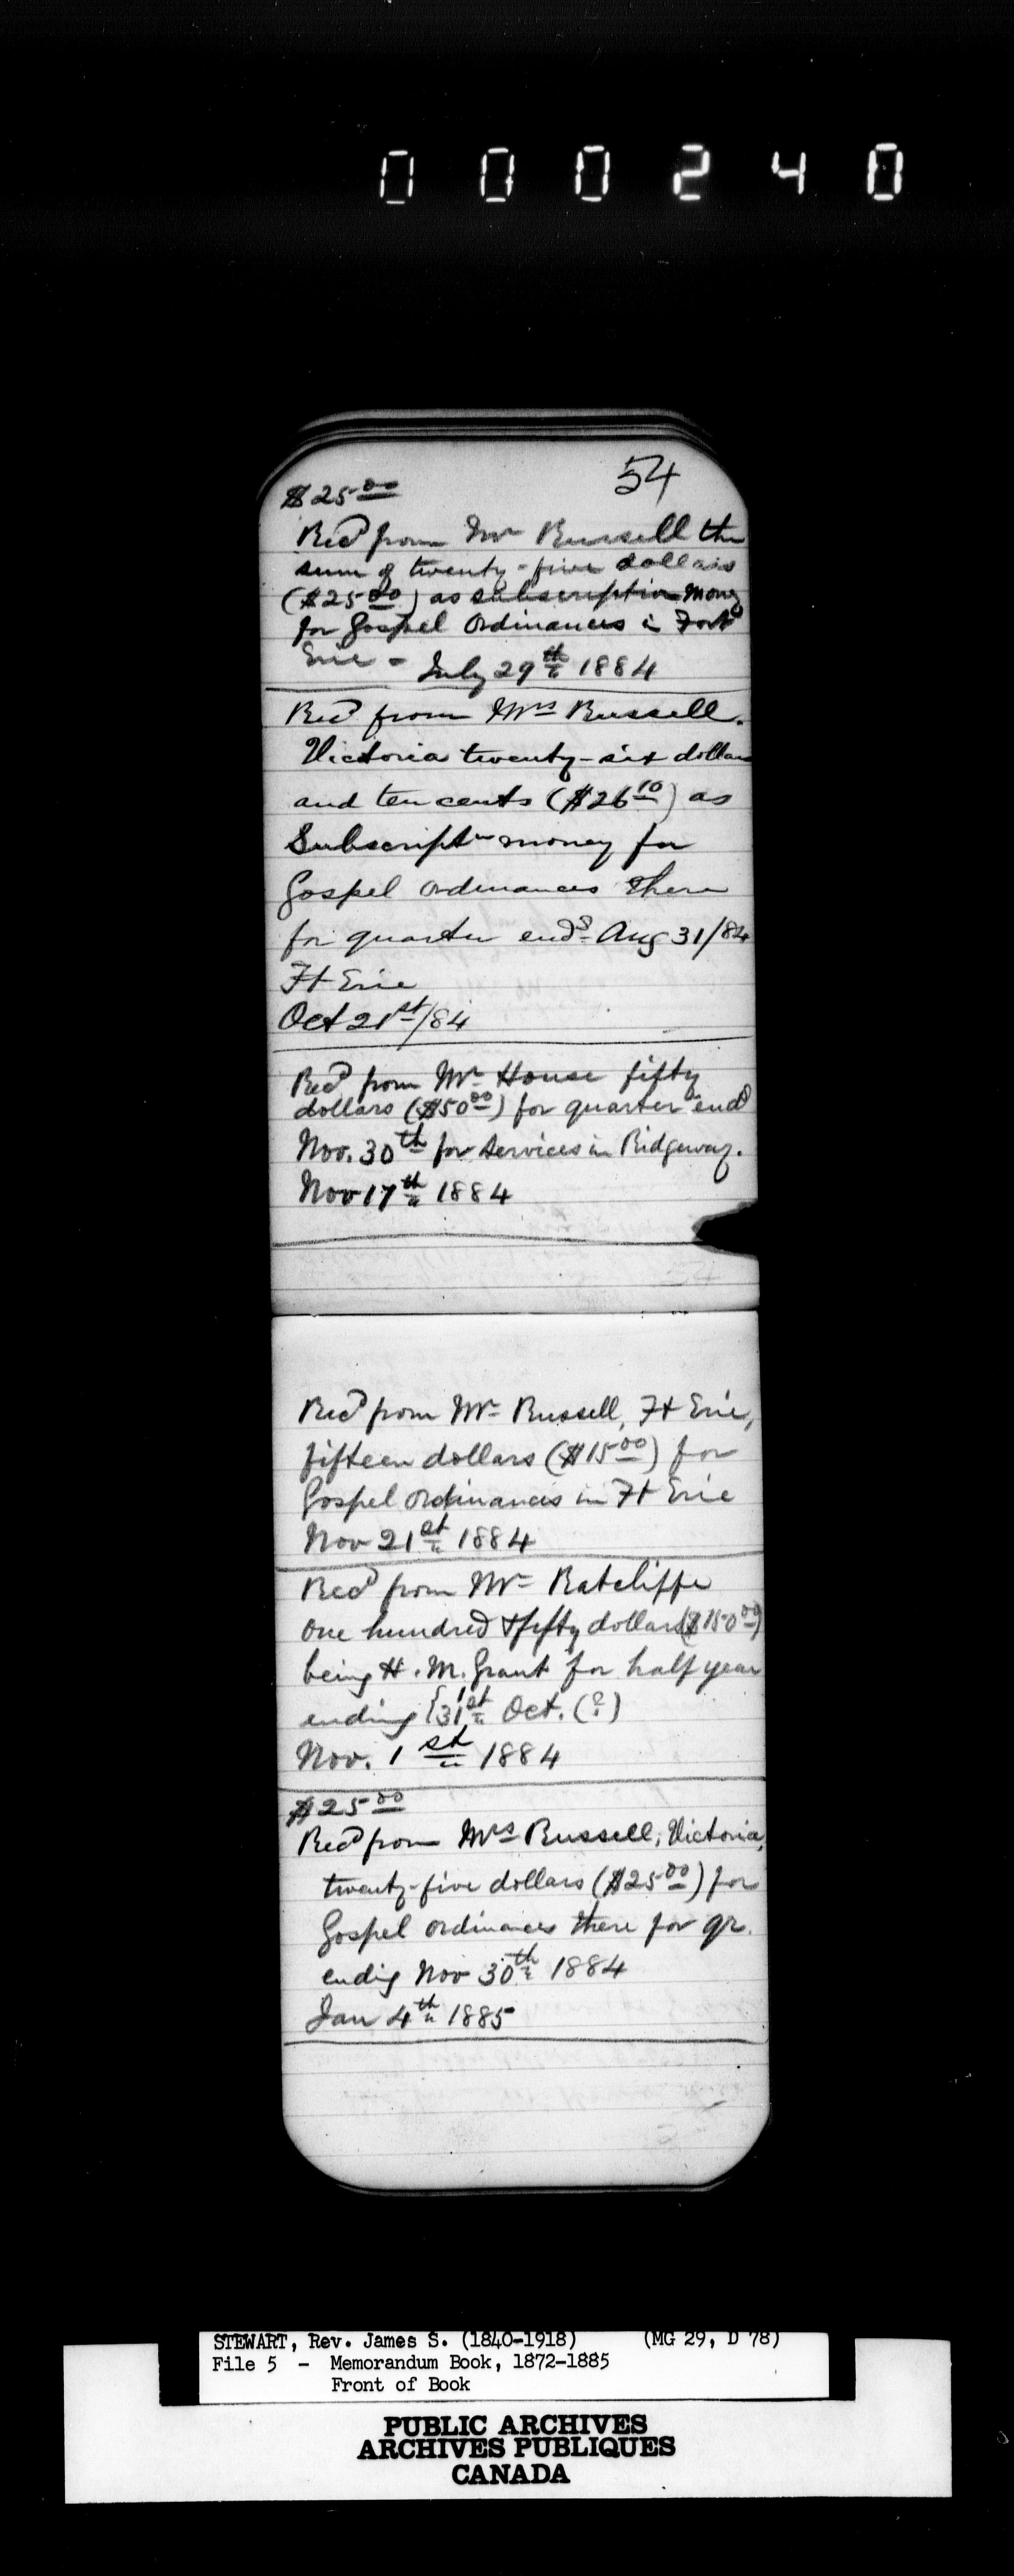 000240
54
$25.00
Recd from Mr Russell the
sum of twenty-five dollars
($25.00) as subscription money
for Gospel Ordinances in Fort
Erie - July 29th 1884
Recd from Mrs Russell.
Victoria twenty-six dollars
and ten cents ($26.10) as
Subscriptn money for
Gospel ordinances there
for quarter endg Aug 31/84
Ft Erie
Oct 21st/84
Recd from Mr House fifty
dollars ($50.00) for quarter endg
Nov. 30th for services in Ridgeway.
Nov 17th 1884
Recd from Mr Russell, Ft Erie,
fifteen dollars ($15.00) for
Gospel Ordinances in Ft Erie
Nov 21st 1884
Recd from Mr Ratcliffe
one hundred & fifty dollars ($150.00)
being H. M. Grant for half year
ending {31st Oct. (?)
Nov. 1st 1884
$25.00
Recd from Mrs Russell, Victoria,
twenty-five dollars ($25.00) for
Gospel ordinances there for qr.
endig Nov 30th 1884
Jan 4th 1885
STEWART, Rev. James S. (1840-1918) (MG 29, D 78)
File 5 - Memorandum Book, 1872-1885
Front of Book
PUBLIC ARCHIVES
ARCHIVES PUBLIQUES
CANADA